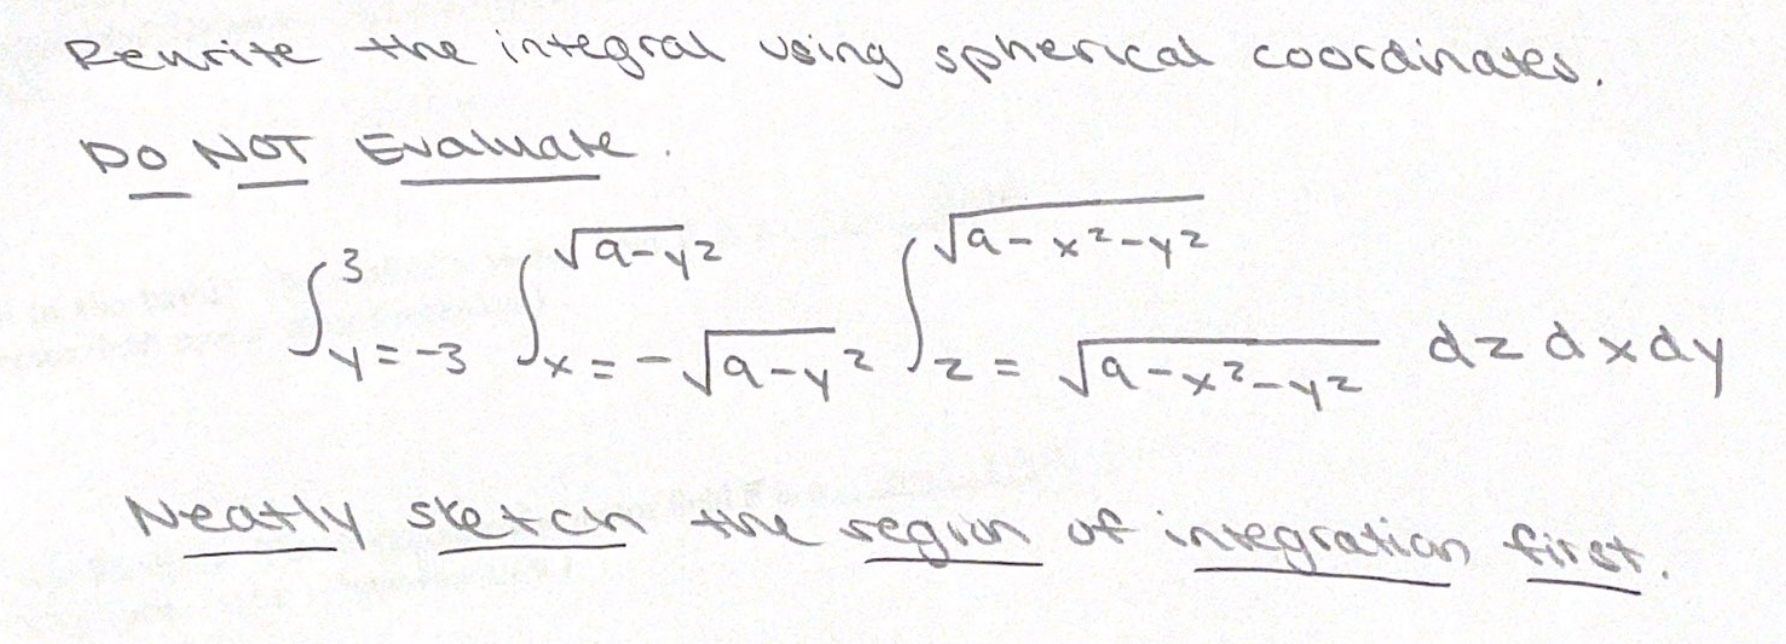 Rewrite the integral using spherical coordinates.
DO NOT Evaluate.
∫_{y=-3}^{3} ∫_{x=-√(9-y²)}^{√(9-y²)} ∫_{z=√(9-x²-y²)}^{√(9-x²-y²)} dz dx dy
Neatly sketch the region of integration first.